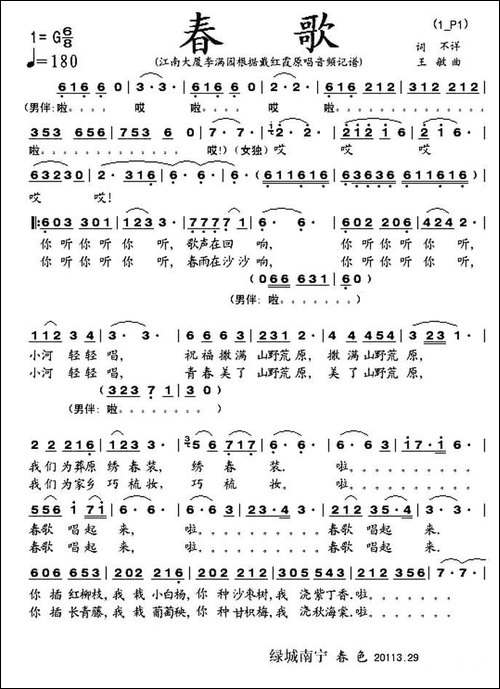 春 歌
(1_P1)
1=G 6/8
♩=180
(江南大厦李满园根据戴红霞原唱音频记谱)
词 不详
王 敏 曲
616 60 | 3·3· | 616 60 | 616 60 | 2·2· | 616 60 |
(男伴:啦。。。。 哎 啦。。。。 啦。。。。 哎 啦。。。。
353 656 | 753 60 | 7·7· | 2·2· | 212 16 | 21 6· |
啦。。。。。。。。。。 哎!)(女独) 哎 哎 哎
63230 | 2·316 | 6·6· | 6· (611616 | 636636 | 611616 |
哎 哎!
603 301 | 123 3· | 7777 1 | 6·6· | 602 206 | 424 2· |
你 听 你 听 你 听, 歌声在回 响, 你 听 你 听 你 听,
你 听 你 听 你 听, 春雨在沙沙 响, 你 听 你 听 你 听,
(066 631 | 60)
(男伴:啦。。。。。。。)
112 3 4 | 3·3· | 6 66 3 | 231 2· | 4 4 454 | 3 231 |
小河 轻轻 唱, 祝福 撒满 山野荒 原, 撒 满山野荒 原,
小河 轻轻 唱, 青春 美了 山野荒 原, 美 了山野荒 原,
(323 7 1 | 3 0)
(男伴:啦。。。。。。。。)
2 2 216 | 123 3· | 56 717 | 6·6· | 6·6 3 | 17·1 6· |
我们 为葬原 绣春装, 绣 春 装. 啦。。。。。。。。
我们 为家乡 巧梳妆, 巧 梳 妆. 啦。。。。。。。。
556 i 71 | 3·3· | 6·6 3 | 6·6· | 212 35·4 | 3·3· |
春歌 唱起 来, 啦。。。。。。。。。 春歌 唱起 来.
春歌 唱起 来, 啦。。。。。。。。。 春歌 唱起 来.
606 653 | 202 216 | 202 216 | 202 323 | 305 543 | 212 356 | 7·7· |
你 插 红柳枝,我 栽 小白杨, 你 种 沙枣树,我 浇 紫丁香. 啦。。。。
你 插 长青藤,我 栽 葡萄秧, 你 种 甘枳梅,我 浇 秋海棠. 啦。。。。
绿城南宁 春 色 20113.29